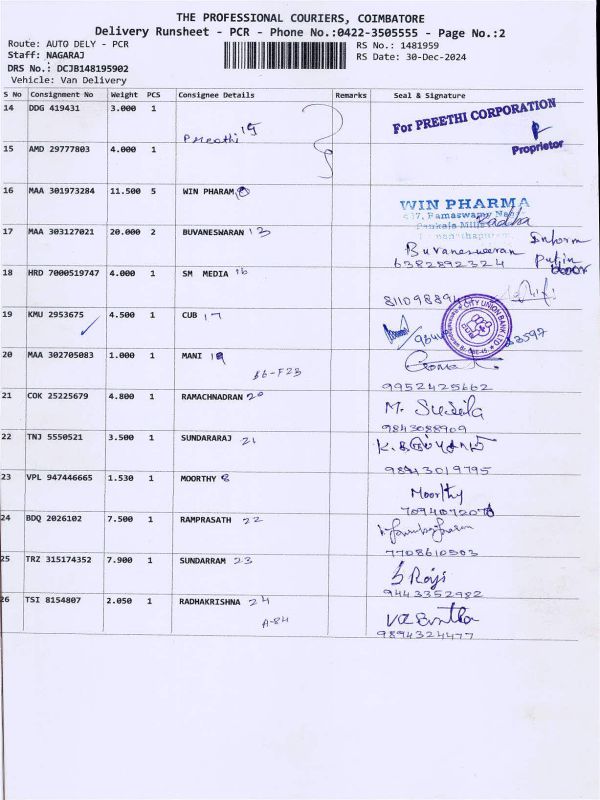 THE PROFESSIONAL COURIERS, COIMBATORE
Delivery Runsheet - PCR - Phone No.:0422-3505555 - Page No.:2
Route: AUTO DELY - PCR RS No.: 1481959
Staff: NAGARAJ RS Date: 30-Dec-2024
DRS No.: DCJB148195902
Vehicle: Van Delivery
S No Consignment No Weight PCS Consignee Details Remarks Seal & Signature
14 DDG 419431 3.000 1
Preethi 15
For PREETHI CORPORATION
Proprietor
15 AMD 29777803 4.000 1
16 MAA 301973284 11.500 5 WIN PHARAM
WIN PHARMA
Radha
17 MAA 303127021 20.000 2 BUVANESWARAN 13
Inform
Buvaneswaran
6382892324
Put in
door
18 HRD 7000519747 4.000 1 SM MEDIA 16
19 KMU 2953675 4.500 1 CUB 17
CITY UNION BANK LTD
20 MAA 302705083 1.000 1 MANI 19
B6-F23
9952425662
21 COK 25225679 4.800 1 RAMACHNADRAN 20
M. Suseela
9843088909
22 TNJ 5550521 3.500 1 SUNDARARAJ 21
98943019795
23 VPL 947446665 1.530 1 MOORTHY 8
Moorthy
24 BDQ 2026102 7.500 1 RAMPRASATH 22
7708610503
25 TRZ 315174352 7.900 1 SUNDARRAM 23
9443352982
26 TSI 8154807 2.050 1 RADHAKRISHNA 24
A-84
9894324477